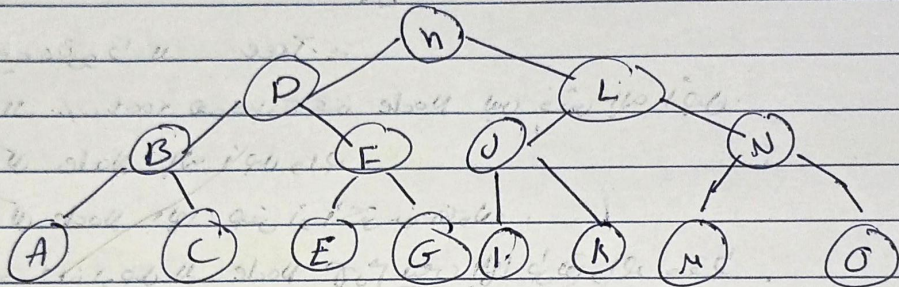 h
D L
B F J N
A C E G I K M O